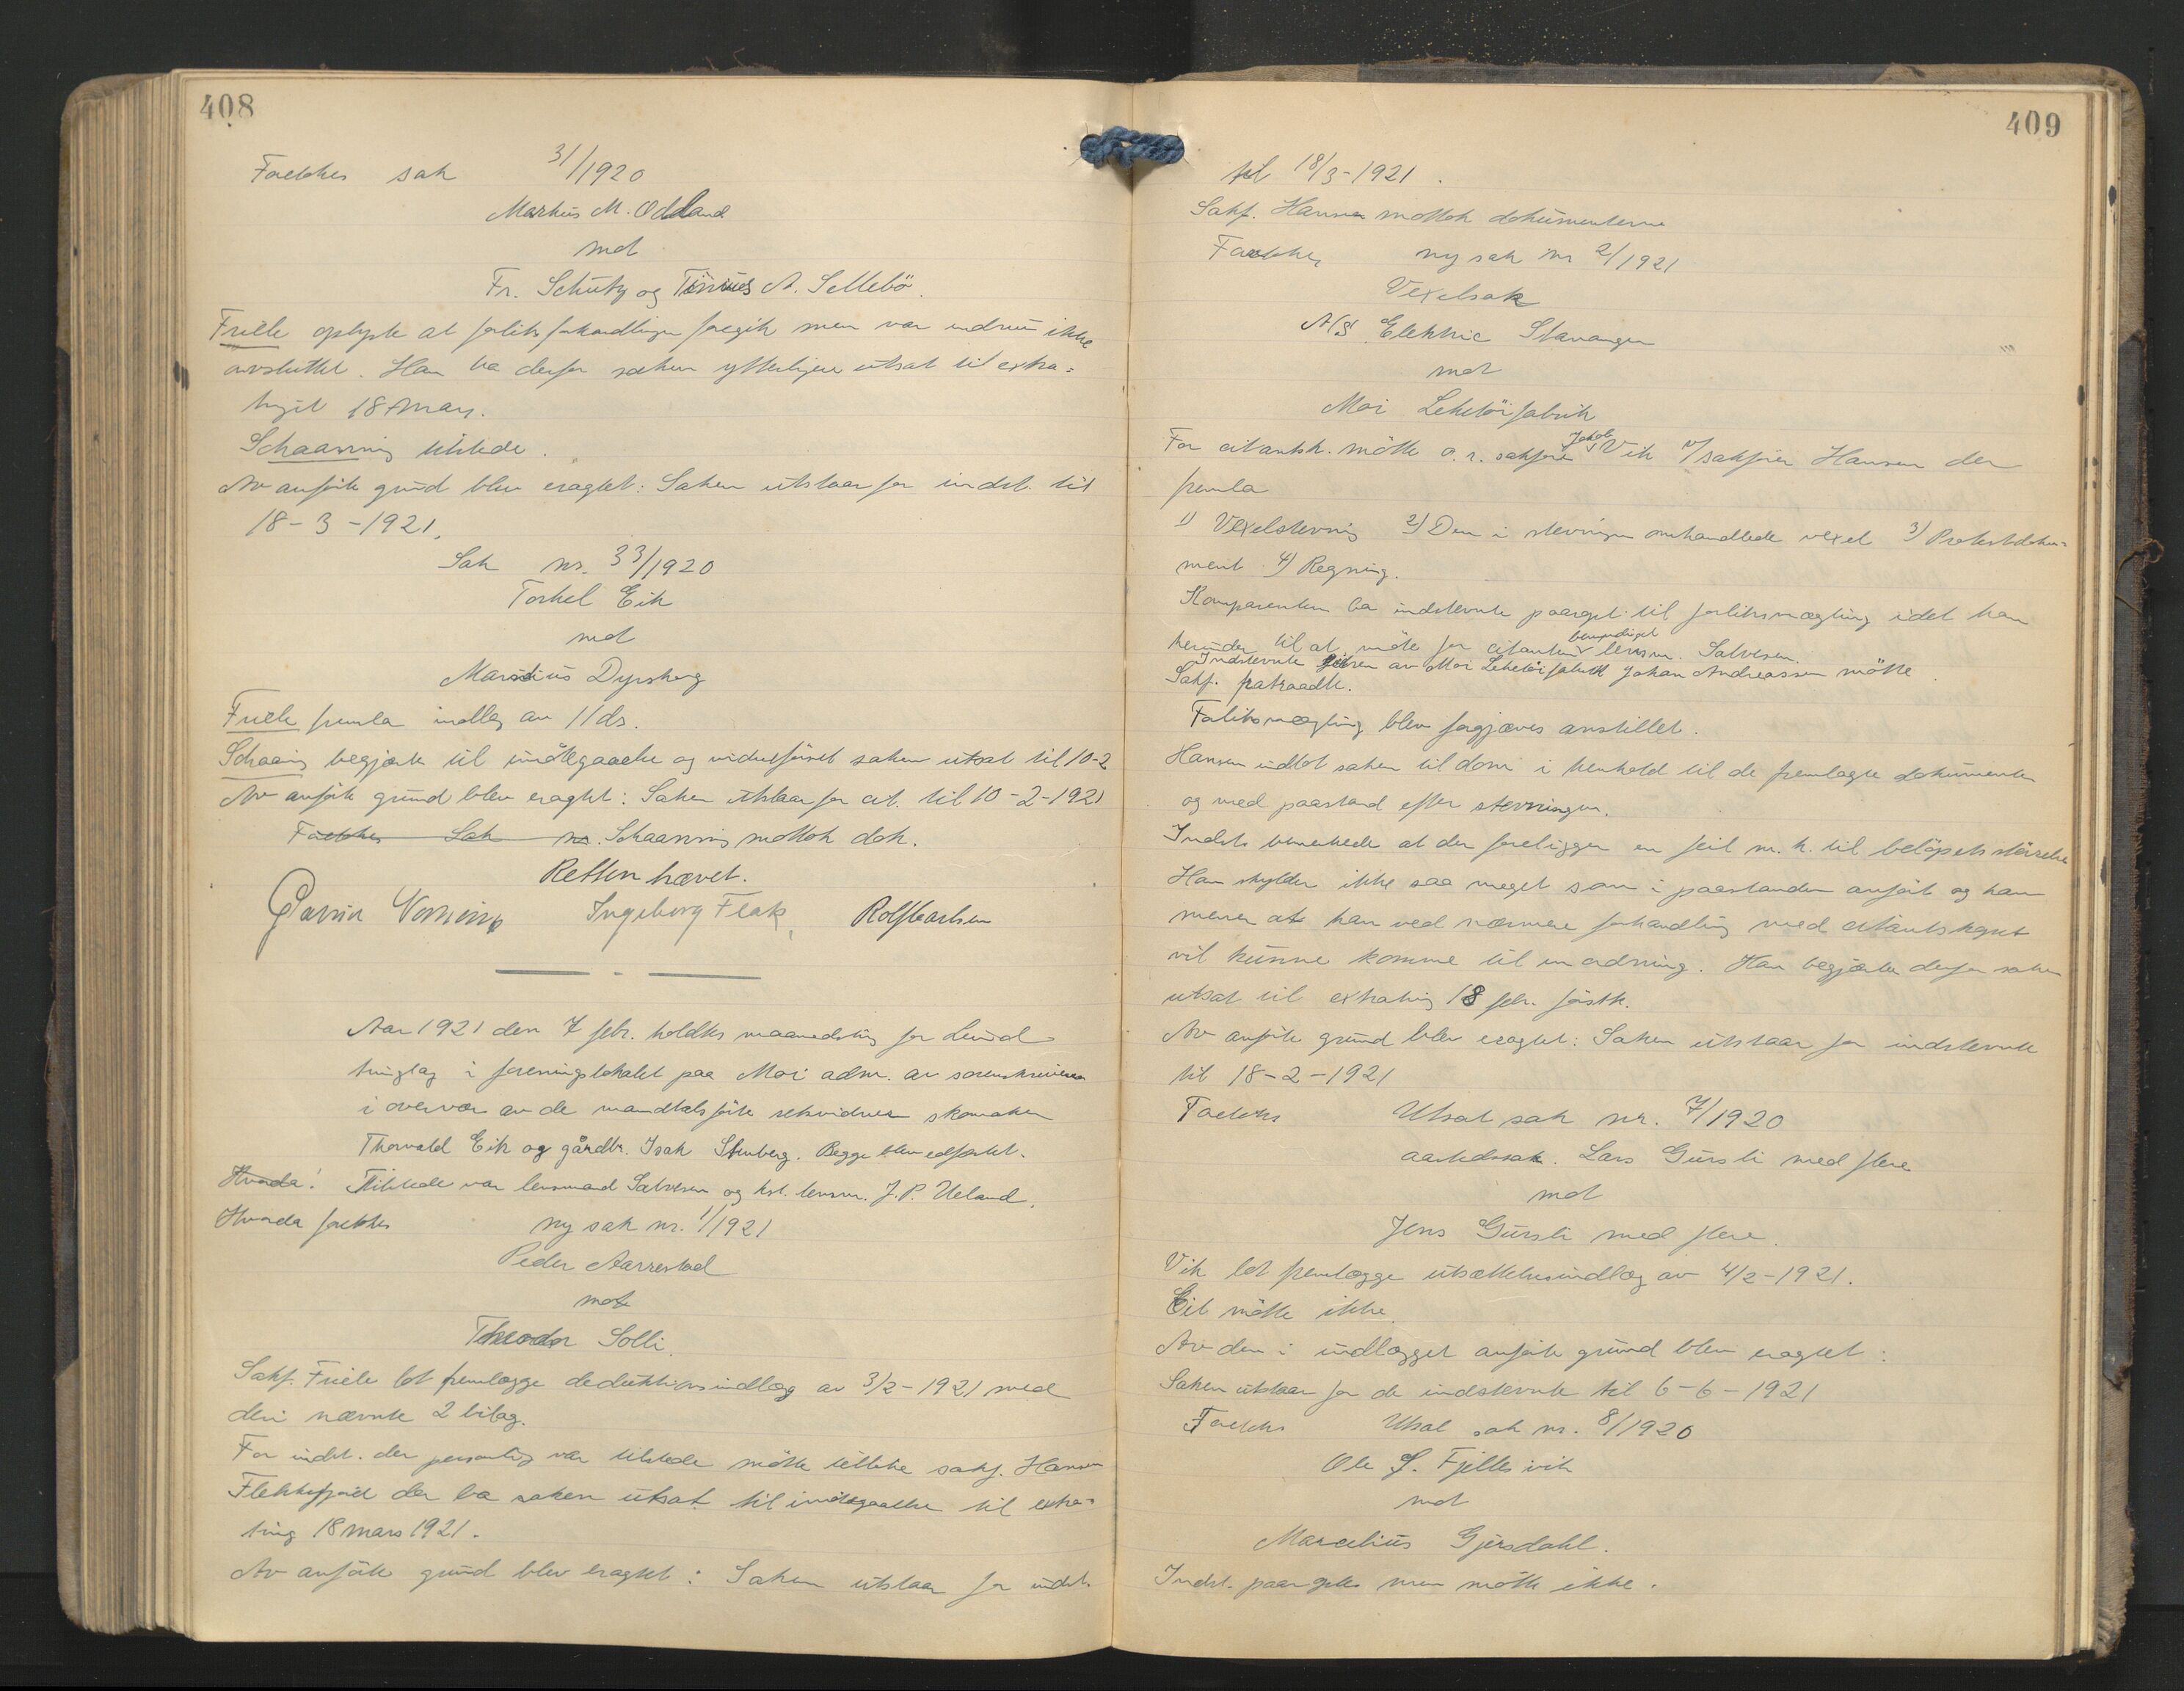 408
Foretokes sak 31/1920
Markus M. Oddland
mot
Fr. Schutz og Tönnes A. Sellebö.
Friele oplyste at forliksforhandlinger foregik men var endnu ikke
avsluttet. Han ba derfor saken ytterligere utsat til extra-
tinget 18 Mars.
Schaanning tilstede.
Av anförte grund blev eragtet: Saken utstaar for indst. til
18-3-1921.
Sak nr. 33/1920
Torkel Eik
mot
Marsilius Dyrskog
Friele fremla indlæg av 11 ds.
Schaaning begjærte til imötegaaelse og vidnesförsel saken utsat til 10-2
Av anförte grund blev eragtet: Saken utstaar for cit. til 10-2-1921
Foretokes Sak nr. Schaanning mottok dok.
Retten hævet.
Ingeborg Flak, Rolf Carlsen
Aar 1921 den 7 febr. holdtes maanedsting for Lund
tinglag i foreningslokalet paa Moi adm. av sorenskriveren
i overvær av de mandtalsförte retsvidner skomaker
Thorvald Eik og gårdbr. Isak Stenberg. Begge blev edfæstet.
Hvorda! Tilstede var lensmand Salvesen og kst. lensm. J. P. Ueland.
Hvorda foretokes ny sak nr. 1/1921
Peder Aarrestad
mot
Theodor Solli.
Sakf. Friele lot fremlægge deduktionsindlæg av 3/2-1921 med
deri nævnte 2 bilag.
For indst. der personlig var tilstede mötte sakf. Hansen
Flekkefjord der ba saken utsat til imötegaaelse til extra-
ting 18 mars 1921.
Av anförte grund blev eragtet: Saken utstaar for indst.
409
til 18/3-1921.
Sakf. Hansen mottok dokumenterne
Foretokes ny sak nr 2/1921
Vexelsak
A/S Elektric Stavanger
mot
Moi Leketöifabrik
For citantsk. mötte o.r. sakförer Jakob Vik v/ sakförer Hansen der
fremla
1) Vexelstevning 2) Den i stevningen omhandlede vexel 3) Protestdoku-
ment 4) Regning.
Komparenten ba indstevnte paaropt til forliksmægling idet han
herunder til at möte for citanten bemyndiget lensm. Salvesen.
Indstevnte eieren av Moi Leketöifabrik Johan Andreassen mötte.
Sakf. fratraadte.
Forliksmægling blev forgjæves anstillet.
Hansen indlot saken til dom i henhold til de fremlagte dokumenter
og med paastand efter stevningen.
Indst. bemerkede at der foreligger en feil m. h. til belöpets störrelse
Han skylder ikke saa meget som i paastanden anfört og han
mener at han ved nærmere forhandling med citantskapet
vil kunne komme til en ordning. Han begjærte derfor saken
utsat til extrating 18 febr. förstk.
Av anförte grund blev eragtet: Saken utstaar for indstevnte
til 18-2-1921
Foretokes Utsat sak nr. 7/1920
aastedssak. Lars Gursli med flere
mot
Jens Gursli med flere.
Vik lot fremlægge utsættelsesindlæg av 4/2-1921.
Cit mötte ikke.
Av den i indlægget anförte grund blev eragtet:
Saken utstaar for de indstevnte til 6-6-1921
Foretokes Utsat sak nr. 8/1920
Ole S. Fjellesvik
mot
Marcelius Gjersdahl.
Indst. paaroptes men mötte ikke.